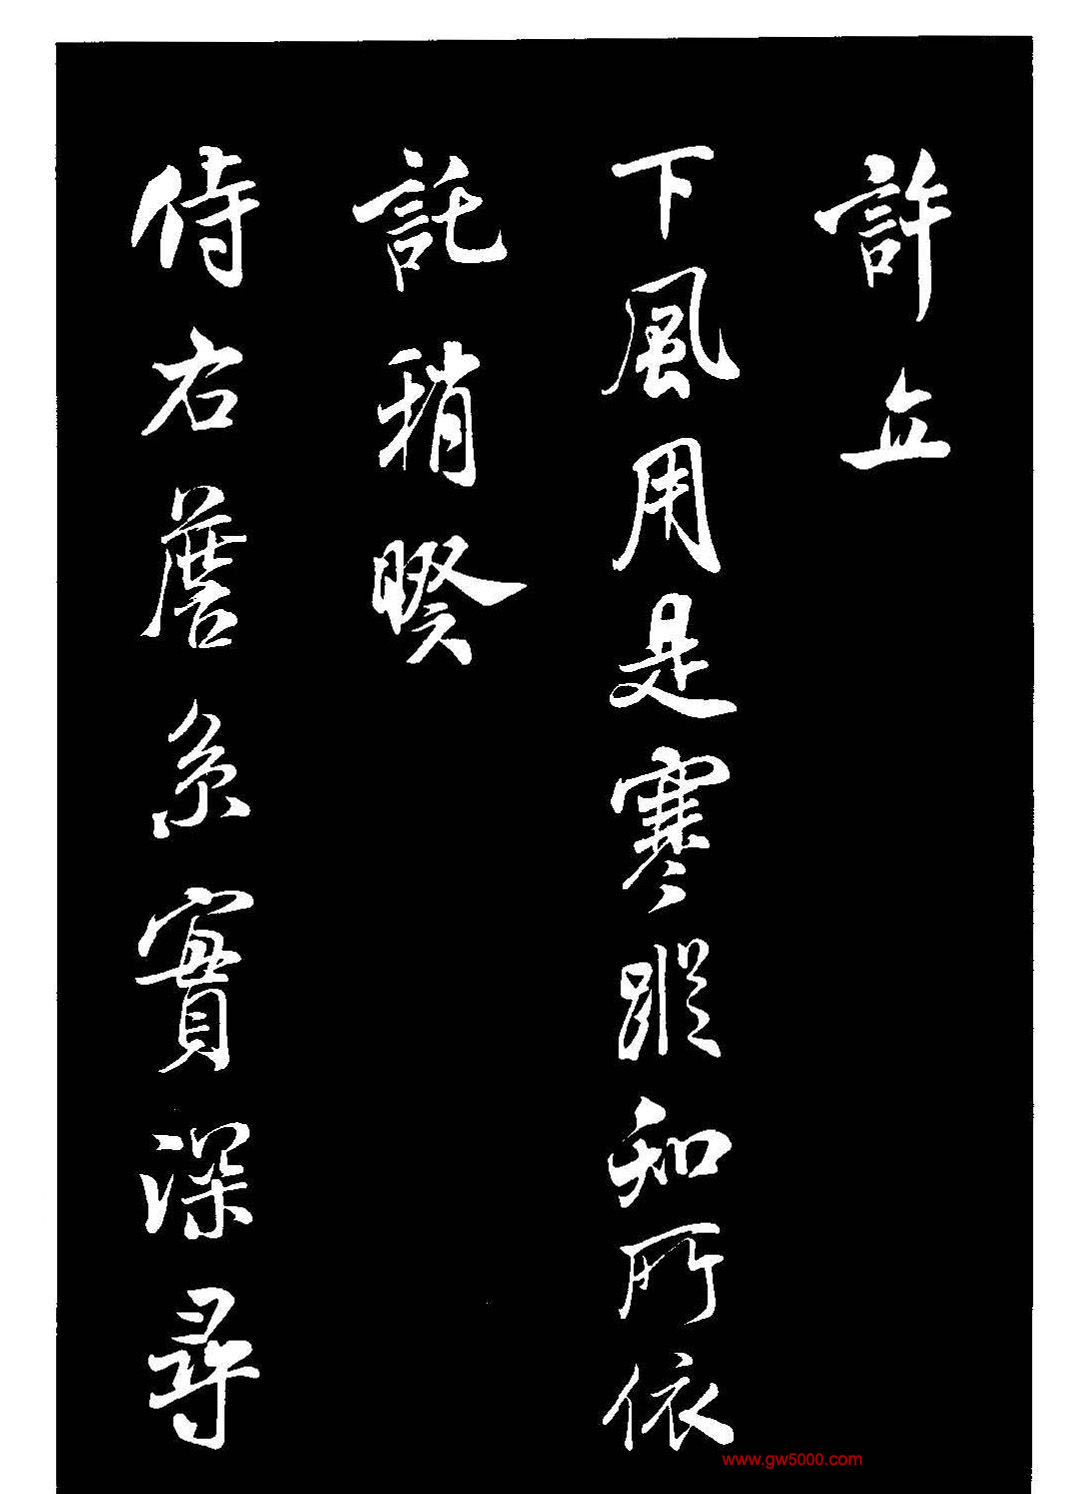 許立
下風用是寒蹤知所依
託稍暌
侍右詹系實深尋
www.gw5000.com